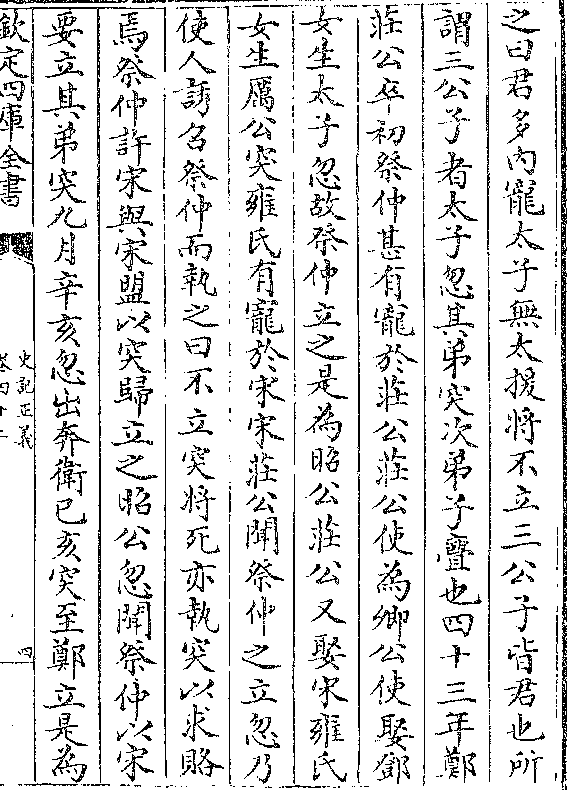 之曰君多内寵太子無大援將不立三公子皆君也所
謂三公子者太子忽其弟突次弟子亹也四十三年鄭
莊公卒初祭仲甚有寵於莊公莊公使為卿公使娶鄧
女生太子忽故祭仲立之是為昭公莊公又娶宋雍氏
女生厲公突雍氏有寵於宋宋莊公聞祭仲之立忽乃
使人誘召祭仲而執之曰不立突將死亦執突以求賂
焉祭仲許宋與宋盟以突歸立之昭公忽聞祭仲以宋
要立其弟突九月辛亥忽出奔衛己亥突至鄭立是為
欽定四庫全書
史記正義
卷四十二
四